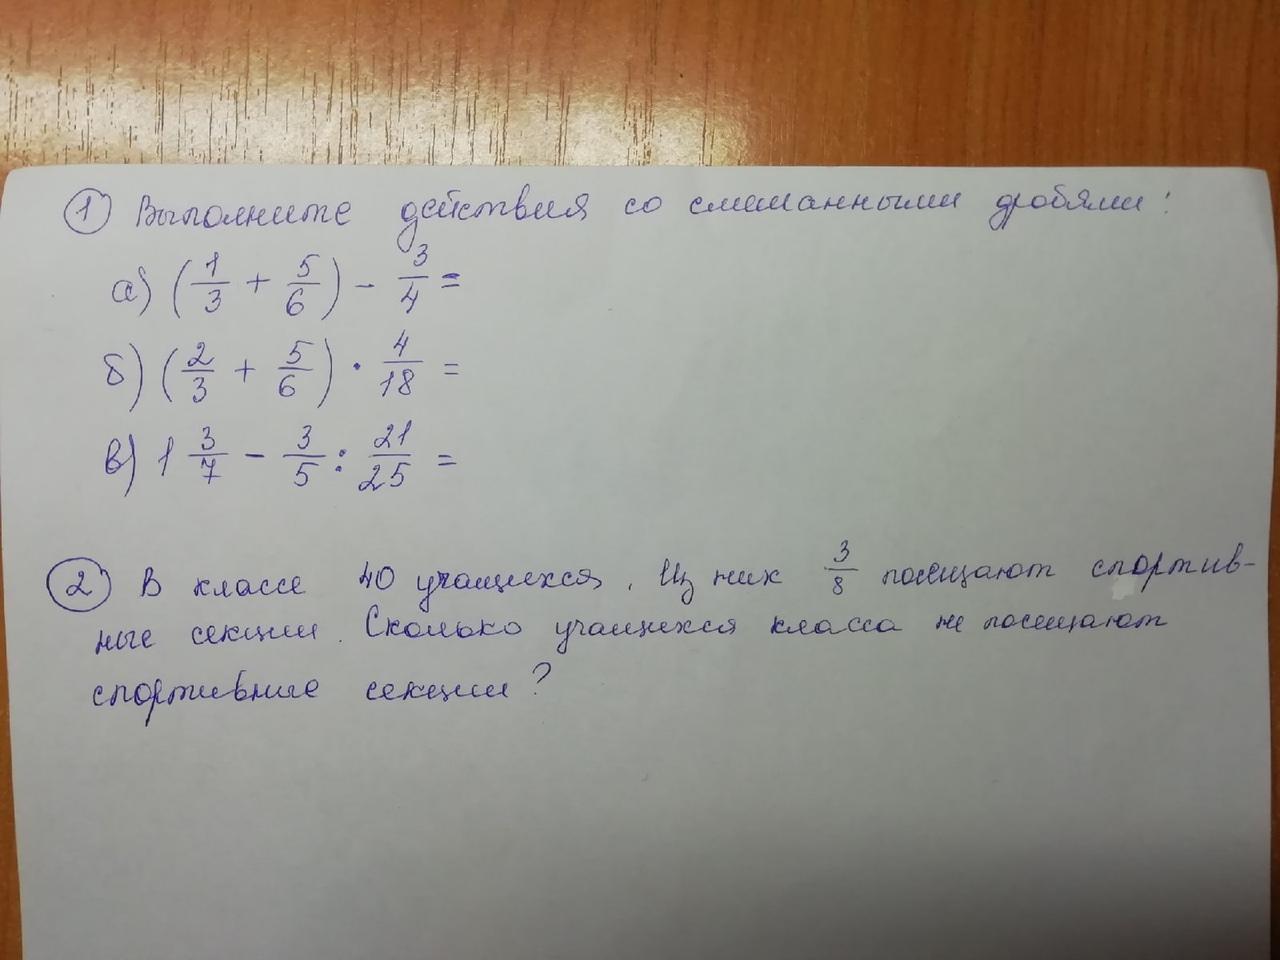 1 Выполните действия со смешанными дробями:
а) (1/3 + 5/6) - 3/4 =
б) (2/3 + 5/6) · 4/18 =
в) 1 3/7 - 3/5 : 21/25 =
2 В классе 40 учащихся. Из них 3/8 посещают спортив-
ные секции. Сколько учащихся класса не посещают
спортивные секции?